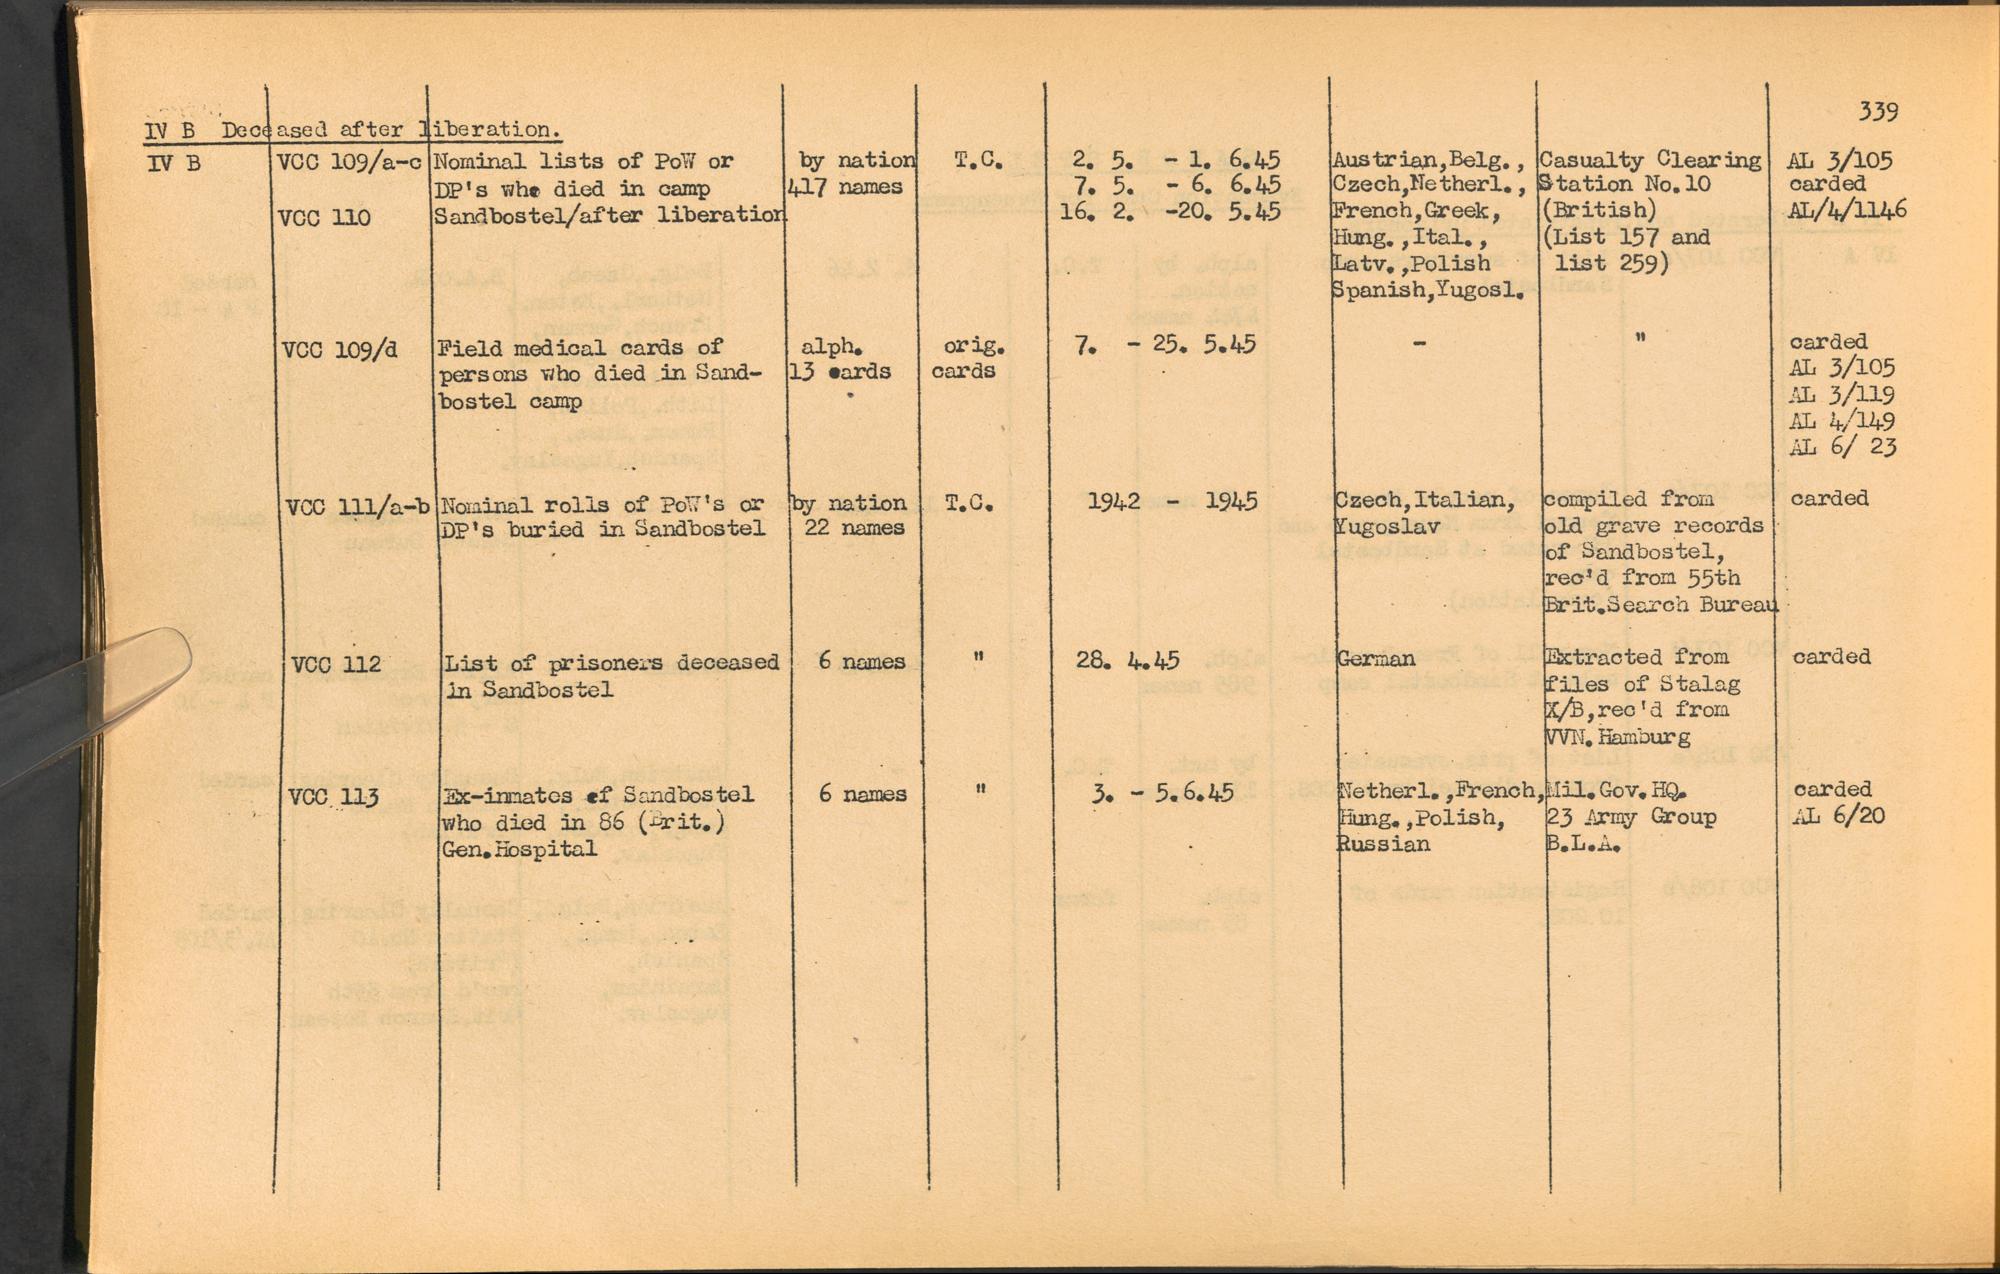 339
IV B Deceased after liberation.
IV B VCC 109/a-c Nominal lists of PoW or by nation T.C. 2. 5. - 1. 6.45 Austrian,Belg., Casualty Clearing AL 3/105
DP's who died in camp 417 names 7. 5. - 6. 6.45 Czech,Netherl., Station No.10 carded
VCC 110 Sandbostel/after liberation 16. 2. -20. 5.45 French,Greek, (British) AL/4/1146
Hung.,Ital., (List 157 and
Latv.,Polish list 259)
Spanish,Yugosl.
VCC 109/d Field medical cards of alph. orig. 7. - 25. 5.45 - " carded
persons who died in Sand- 13 cards cards AL 3/105
bostel camp AL 3/119
AL 4/149
AL 6/ 23
VCC 111/a-b Nominal rolls of PoW's or by nation T.C. 1942 - 1945 Czech,Italian, compiled from carded
DP's buried in Sandbostel 22 names Yugoslav old grave records
of Sandbostel,
rec'd from 55th
Brit.Search Bureau
VCC 112 List of prisoners deceased 6 names " 28. 4.45 German Extracted from carded
in Sandbostel files of Stalag
X/B,rec'd from
VVN. Hamburg
VCC 113 Ex-inmates of Sandbostel 6 names " 3. - 5.6.45 Netherl.,French, Mil.Gov.HQ. carded
who died in 86 (Brit.) Hung.,Polish, 23 Army Group AL 6/20
Gen.Hospital Russian B.L.A.